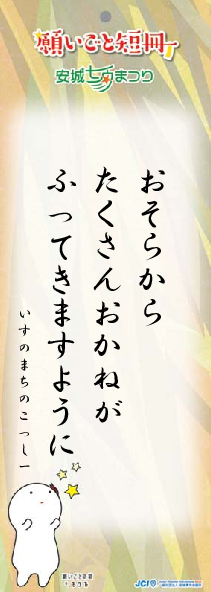 願いごと短冊
安城七夕まつり
おそらから
たくさんおかねが
ふってきますように
いすのまちのこっしー
願いごと短冊
JCI